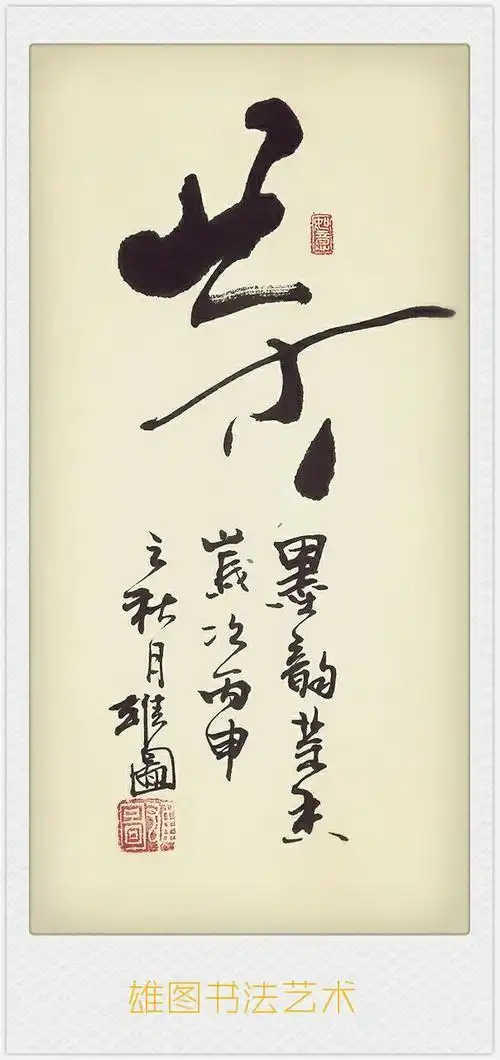 茶
墨韵茶香
歲次丙申
之秋月雄圖
雄图书法艺术